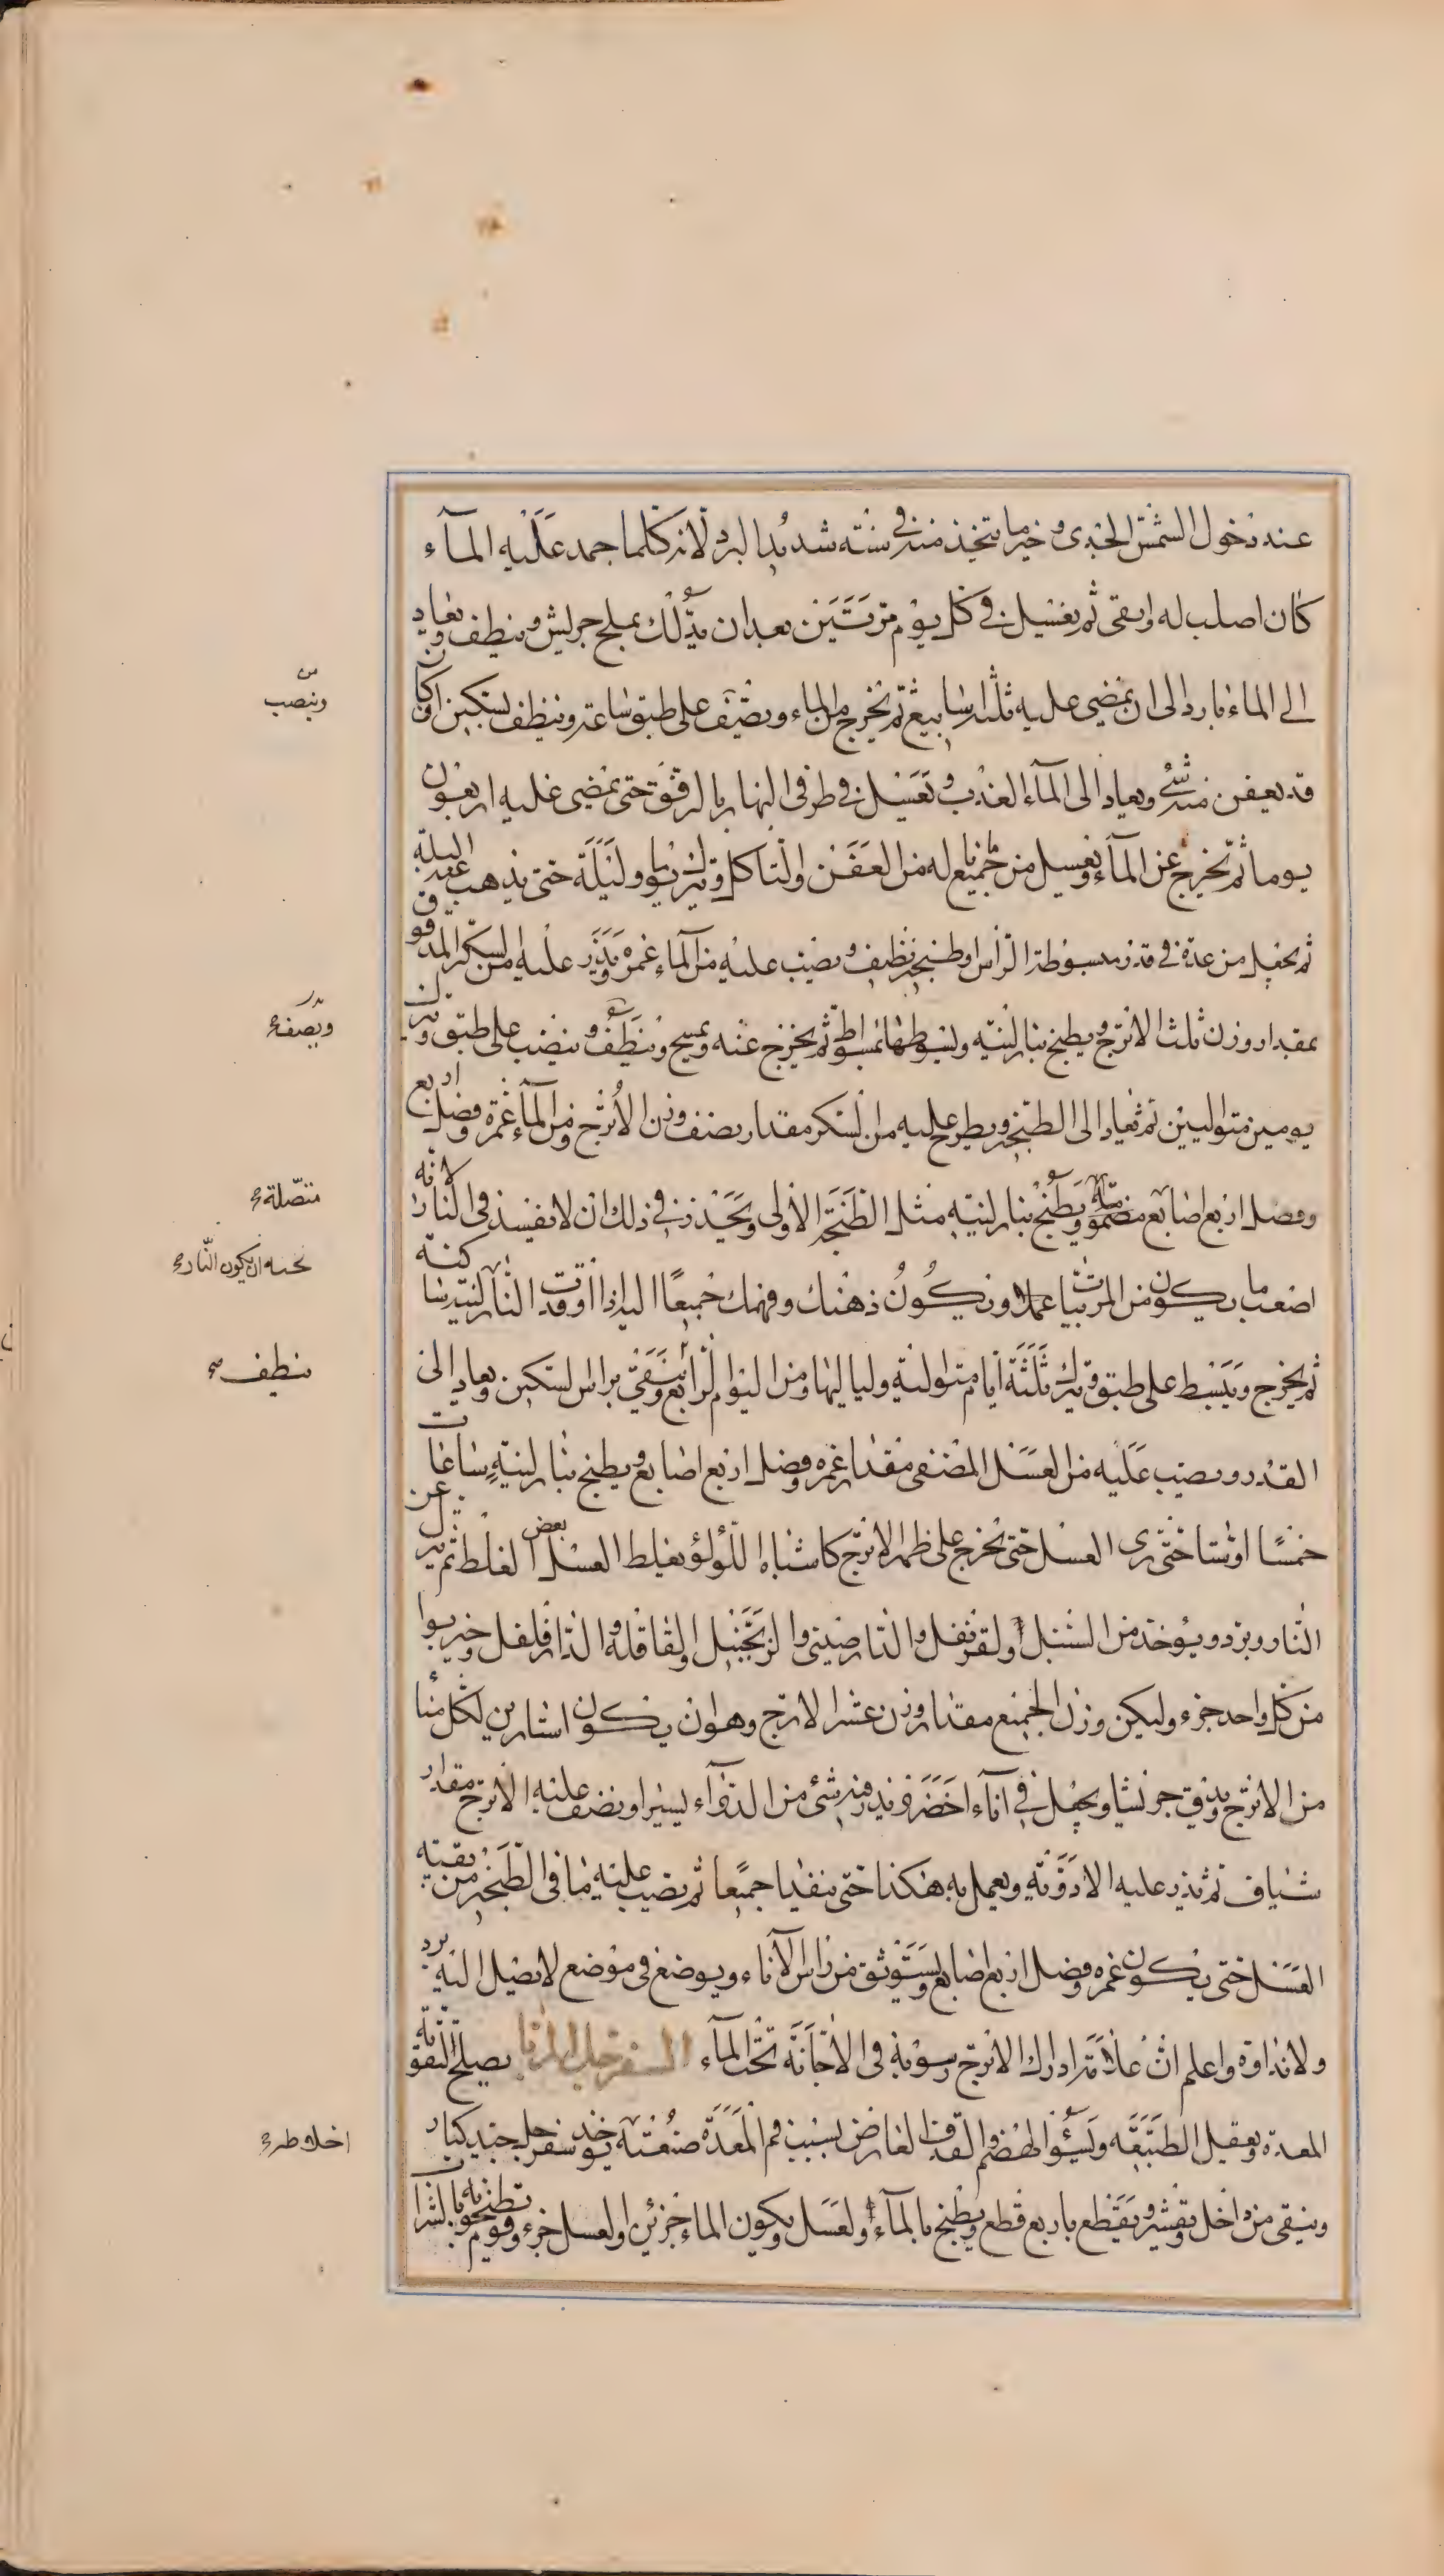 عند دخول الشمس الجدى و خير ما يتخذ منه فى سنته شديد البرد لانه كلما جمد عليه الماء
كان اصلب له وابقى ثم يغسل فى كل يوم مرتين بعد ان يدلك بملح جريش و ينظف ويعاد
الى الماء بارد الى ان يمضى عليه ثلثه اسابيع ثم يخرج من الماء ويصف على طبق ساعة وينظف بسكين اذا كان
قد يعفن منه شئ ويعاد الى الماء العذب و يغسل فى طرفى النهار بالرفق حتى يمضى عليه اربعون
يوما ثم يخرج عن الماء ويغسل من جميع ما له من العفن والتاكل ويترك يوما وليلة حتى يذهب عنه البلة
ثم يجعل من غده فى قدر مبسوطة الراس او طنجير نظيف ويصب عليه من الماء غمره ويذر عليه من السكر المدقوق
بمقدار وزن ثلث الاترج ويطبخ بنار لينه ثم يخرج عنه ويمسح وينظف و ينضب على طبق ويترك
يومين متواليين ثم يعاد الى الطنجير ويطرح عليه من السكر مقدار نصف وزن الاترج ومن الماء غمرة وفضل اربع
وفضل اربع اصابع مضمومة ويطبخ بنار لينه مثل الطبخة الاولى ويحذر فى ذلك ان لا يفسد فى النار لانه
اصعب ما يكون من المربيات عملا ويكون ذهنك وفهمك جميعا اليه اذا اوقدت النار لينة ساكنة
ثم يخرج ويبسط على طبق ويترك ثلثة ايام متوالية ولياليها ومن اليوم الرابع ينقى براس السكين ويعاد الى
القدر ويصب عليه من العسل المصفى مقدار غمره وفضل اربع اصابع ويطبخ بنار لينة ساعات
خمسا او ستا حتى يرى العسل حتى يخرج على ظهر الاترج كاشباه اللؤلؤ يغلظ العسل بعض الغلظ ثم ينزل عن
النار ويبرد ويؤخذ من السنبل والقرنفل والدارصينى والزنجبيل والقاقله والدارفلفل وخيربوا
من كل واحد جزء وليكن وزن الجميع مقدار وزن عشر الاترج وهو ان يكون استارين لكل منا
من الاترج ويدق جريشا ويجعل فى اناء اخضر ويذر فيه شئ من الدواء يسيرا ويصف عليه الاترج مقدار
شياف ثم يذر عليه الادوية ويعمل به هكذا حتى ينفدا جميعا ثم يصب عليه ما فى الطنجير من بقية
العسل حتى يكون غمره وفضل اربع اصابع ويستوثق من راس الاناء ويوضع فى موضع لا يصل اليه برد
ولا نداوة واعلم ان علامة ادراك الاترج رسوبه فى الاجانة تحت الماء السفرجل المربا يصلح لتقوية
المعدة ويعقل الطبيعه ولسوء الهضم والقذف العارض بسبب فم المعدة صنعته يوخذ سفرجل جيد كبار
وينقى من داخل ويقشر ويقطع باربع قطع ويطبخ بالماء والعسل ويكون الماء جزئين والعسل جزء وقوم يطبخونه بالشراب
من
وينصب
ويصف
متصلة
تحته ان يكون النار
ينظف
اخلاطه